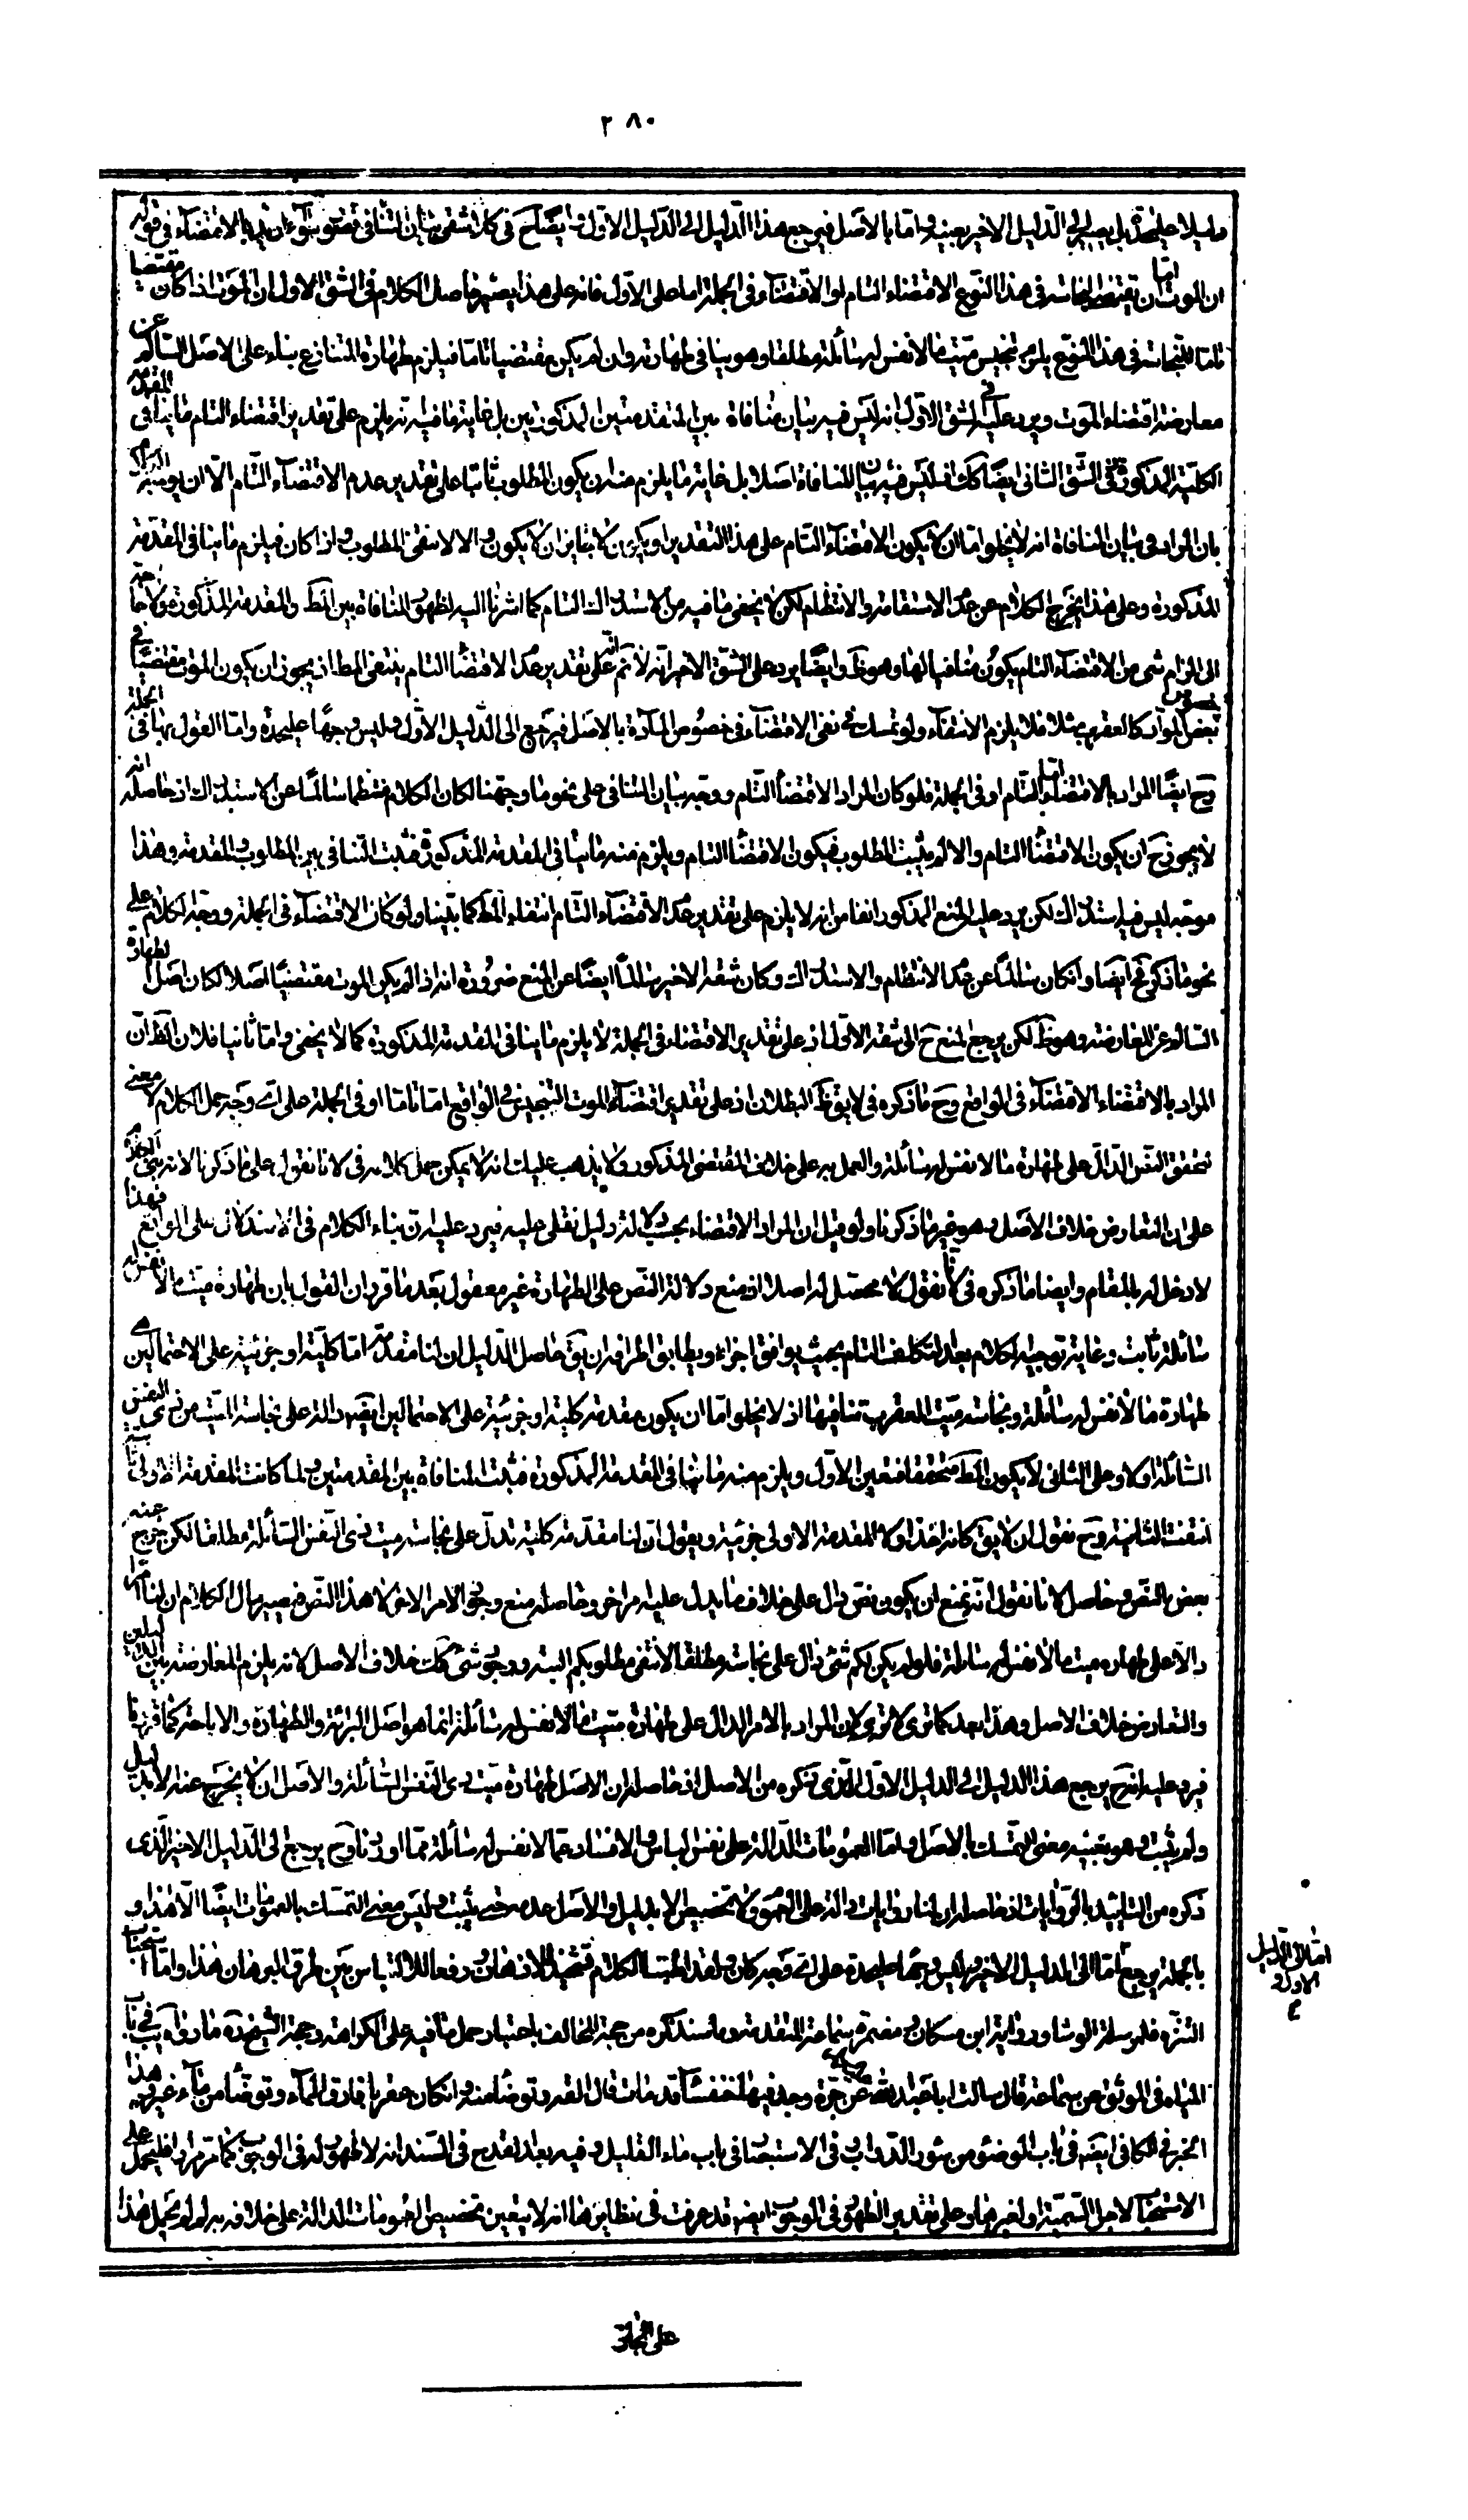 ٢٨٠
دليلا عليحدة بل يصير الدليل الاخير بعينه و اما بالاصل فيرجع هذا الدليل الى الدليل الاول و ايضا ح في كلا شقي بيان التنافي قصور سواء اريد بالاقتضاء في قوله
ان الموت اما ان يقتضي النجاسة في هذا النوع الاقتضاء التام او الاقتضاء في الجملة اما على الاول فانه على هذا يصير حاصل الكلام في الشق الاول ان الموت اذا كان مقتضيا
تاما للنجاسة في هذا النوع يلزم تنجيس ميتة ما لا نفس له سائلة مطلقا وهو ينافي طهارته وان لم يكن مقتضيا تاما فيلزم طهارة المتنازع بناء على الاصل السالم عن
معارضة اقتضاء الموت ويرد عليه في الشق الاول انه ليس فيه بيان منافاة بين المقدمتين المذكورتين بل غاية ما فيه انه يلزم على تقدير اقتضاء التام ما ينافي المقدمة
الكلية المذكورة وفي الشق الثاني ايضا كك فليس فيه بيان للمنافاة اصلا بل غاية ما يلزم منه ان يكون المطلوب ثابتا على تقدير عدم الاقتضاء التام الا ان يوجه الكلام
بان المراد في بيان المنافاة انه لا يخلو اما ان يكون الاقتضاء التام على هذا التقدير او يكون لا جايز ان لا يكون و الا لانتفى المطلوب و اذا كان فيلزم ما ينافي المقدمة
المذكورة وعلى هذا يخرج الكلام عن حد الاستقامة والانتظام لكن لا يخفى ما فيه من الاستدراك التام كما اشرنا اليه لظهور المنافاة بين المط والمقدمة المذكورة ولا حاجة
الى التزام شيء من الاقتضاء التام يكون منافيا لها وهو ظ وايضا يرد على الشق الاخير انه لا نم انه على تقدير عدم الاقتضاء التام ينتفي المط اذ يجوز ان يكون الموت مقتضيا في
بعض المواد كالعقرب مثلا فلا يلزم الانتفاء ولو تمسك في نفي الاقتضاء في خصوص المادة بالاصل فيرجع الى الدليل الاول وليس وجها عليحدة واما القول بها في الجملة
وح ايضا المراد بالاقتضاء اما التام او في الجملة فلو كان المراد الاقتضاء التام ووجه بيان التنافي على نحو ما وجهنا لكان الكلام منتظما سالما عن الاستدراك اذ حاصله انه
لا يجوز ح ان يكون الاقتضاء التام والا لم يثبت المطلوب فيكون الاقتضاء التام ويلزم منه ما ينافي المقدمة المذكورة فثبت التنافي بين المطلوب والمقدمة وهذا
موجه ليس فيه استدراك لكن يرد عليه المنع المذكور انفا من انه لا يلزم على تقدير عدم الاقتضاء التام انتفاء المط كما بينا ولو كان الاقتضاء في الجملة ووجه الكلام على
نحو ما ذكر فح ايضا وان كان سالما عن عدم الانتظام والاستدراك وكان شقه الاخير سالما ايضا عن المنع ضرورة انه اذا لم يكن الموت مقتضيا اصلا لكان اصل الطهارة
السالم عن المعارضة وهو ظ لكن يرجع المنع ح الى شقه الاول اذ على تقدير الاقتضاء في الجملة لا يلزم ما ينافي المقدمة المذكورة كما لا يخفى و اما ثانيا فلان الظ ان
المراد بالاقتضاء الاقتضاء في الواقع وح ما ذكره في لا يق ظ البطلان اذ على تقدير اقتضاء الموت التنجيس في الواقع اما تاما او في الجملة على اي وجه حمل الكلام لا معنى
لتحقق النص الدال على طهارة ما لا نفس له سائلة والعمل به على خلاف المقتضي المذكور ولا يذهب عليك انه لا يمكن حمل كلامه في لانا نقول على ما ذكرنا لانه بنى الكلام
على ان التعارض خلاف الاصل وهو غير ما ذكرنا ولو قيل ان المراد الاقتضاء بحسب دلالة دليل نقلي عليه فيرد عليه ان بناء الكلام في الاستدلال على الواقع فهذا
لا دخل له بالمقام وايضا ما ذكره في لانا نقول لا محصل له اصلا اذ منع دلالة النص على الطهارة غير معقول بعد ما قرر ان القول بان طهارة ميتة ما لا نفس له
سائلة ثابت وغاية توجيه الكلام بعد التكلف التام بحيث يوافق اجزاءه ويطابق اطرافه ان يق حاصل الدليل ان لنا مقدمة اما كلية او جزئية على الاحتمالين هي
طهارة ما لا نفس له سائلة ونجاسة ميتة العقرب تنافيها اذ لا يخلو اما ان يكون مقدمة كلية او جزئية على الاحتمالين ايضا دالة على نجاسة الميتة من ذي النفس
السائلة اولا وعلى الثاني لا يكون المط متحققا فتعين الاول ويلزم منه ما ينافي المقدمة المذكورة فثبت المنافاة بين المقدمتين ولما كانت المقدمة الاولى ثابتة
انتفت الثانية وح نقول ان لا يق كانه اخذ اولا المقدمة الاولى جزئية ويقول ان لنا مقدمة كلية تدل على نجاسة ميتة ذي النفس السائلة مطلقا لكن خرج عنه
بعض بالنص وحاصل لانا نقول انه نمنع ان يكون نص دال على خلاف ما يدل عليه امر اخر وحاصله منع وجود الامر الاخر لا هذا النص فيصير مال الكلام ان لنا امرا
دالا على طهارة ميتة ما لا نفس له سائلة فلو لم يكن لكم شيء دال على نجاسة مطلقا لانتفى مطلوبكم البتة ووجود شيء كك خلاف الاصل لانه يلزم المعارضة بين الدليلين
والتعارض خلاف الاصل وهذا بعد كما ترى لا يقوى لان المراد بالامر الدال على طهارة ميتة ما لا نفس له سائلة انما هو اصل البرائة والطهارة والاباحة كما قررنا
فيرد عليه انه ح يرجع هذا الدليل الى الدليل الاول الذي نذكره من الاصل اذ حاصله ان الاصل طهارة ميتة ذي النفس السائلة والاصل ان لا يخرج عنه الا بدليل
ولم يثبت وهو بعينه معنى التمسك بالاصل واما العمومات الدالة على نفي الباس والافساد عما لا نفس له سائلة مما اوردنا وح يرجع الى الدليل الاخير الذي
ذكره من التاييد بالروايات اذ حاصله ان لنا روايات دالة على العموم ولا تخصيص الا بدليل والاصل عدمه حتى يثبت وليس معنى التمسك بالعمومات ايضا الا هذا و
بالجملة يرجع اما الى الدليل الاخير وليس وجها عليحدة على اي وجه كان ولقد اطنبنا الكلام تشحيذا للاذهان و دفعا للالتباس بين طرق البرهان هذا واما استحباب
التنزه فلمرسلة الوشا ورواية ابن مسكان ومضمرة سماعة المتقدمة وما سنذكره من حجة المخالف باعتبار حمل ما فيه على الكراهة وحجة الشيخ ره ما رواه يب في باب
المياه في الموثق عن سماعة قال سالت ابا عبد الله عن جرة وجد فيها خنفساء قد مات قال القه وتوضا منه و ان كان عقربا فارق الماء وتوضا من ماء غيره وهذا
الخبر في الكافي ايضا في باب الوضوء من سؤر الدواب وفي الاستبصار في باب ماء القليل وفيه بعد القدح في السند انه لا ظهور له في الوجوب كما مر مرارا فليحمل على
الاستحباب لاجل السمية او لغيرها وعلى تقدير الظهور في الوجوب ايضا قد عرفت في نظاير هذا انه لا يتعين تخصيص العمومات الدالة على خلافه به او لو لم يحمل هذا
اما الى الدليل
الاول و
على المجاز